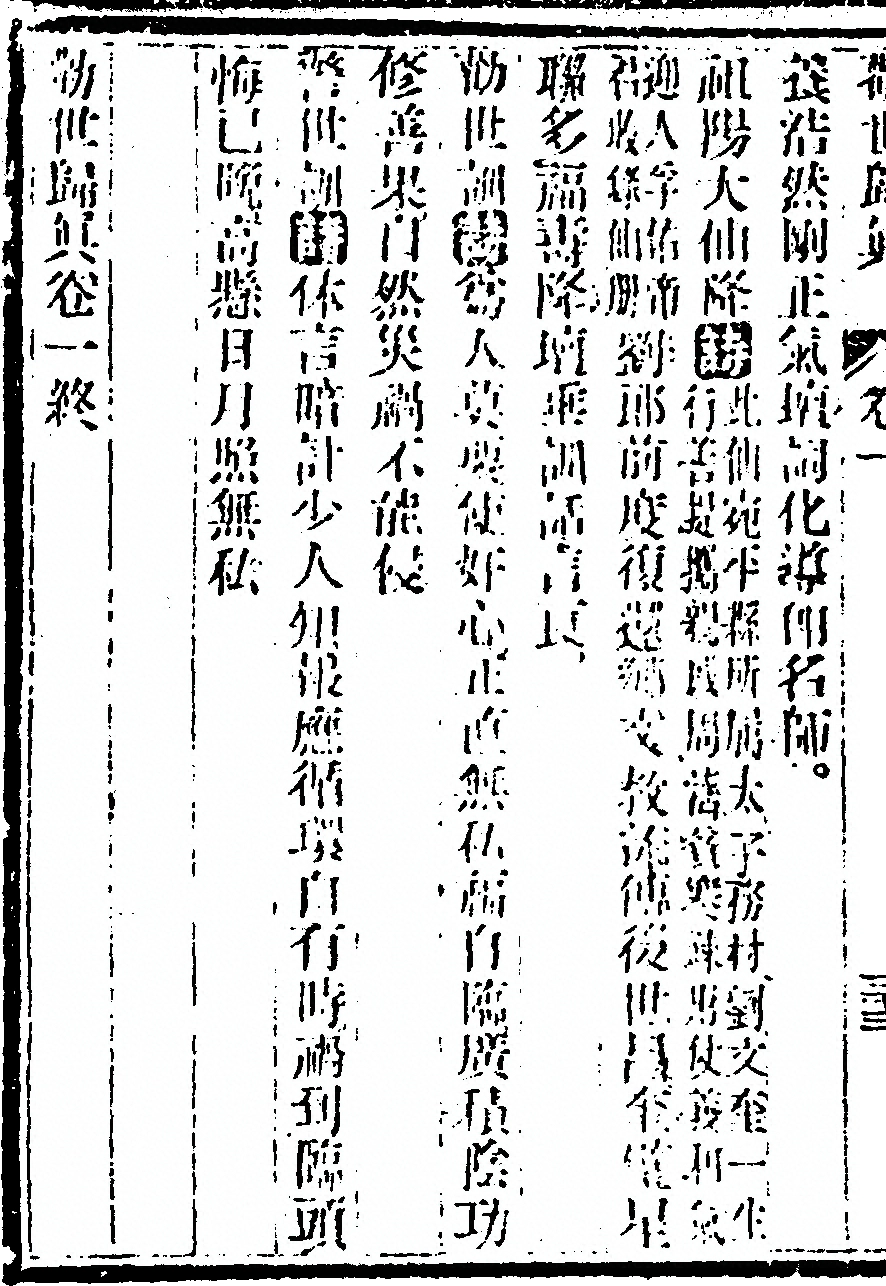 勸世歸真 卷一
義浩然剛正氣壇詞化導仰名師。
祖陽大仙降詩此仙宛平縣所屬太子務村劉文奎一生
行善提攜親戚周濟貧寒疎財仗義和氣
迎人孚佑帝
君收錄仙班劉郎前度復還鄉文教流傳後世昌奎璧星
聯多福壽降壇垂訓話言長
勸世訓詩為人莫要使奸心正直無私福自臨廣積陰功
修善果自然災禍不能侵
警世訓詩休言暗計少人知報應循環自有時禍到臨頭
悔已晚高懸日月照無私
勸世歸真卷一終